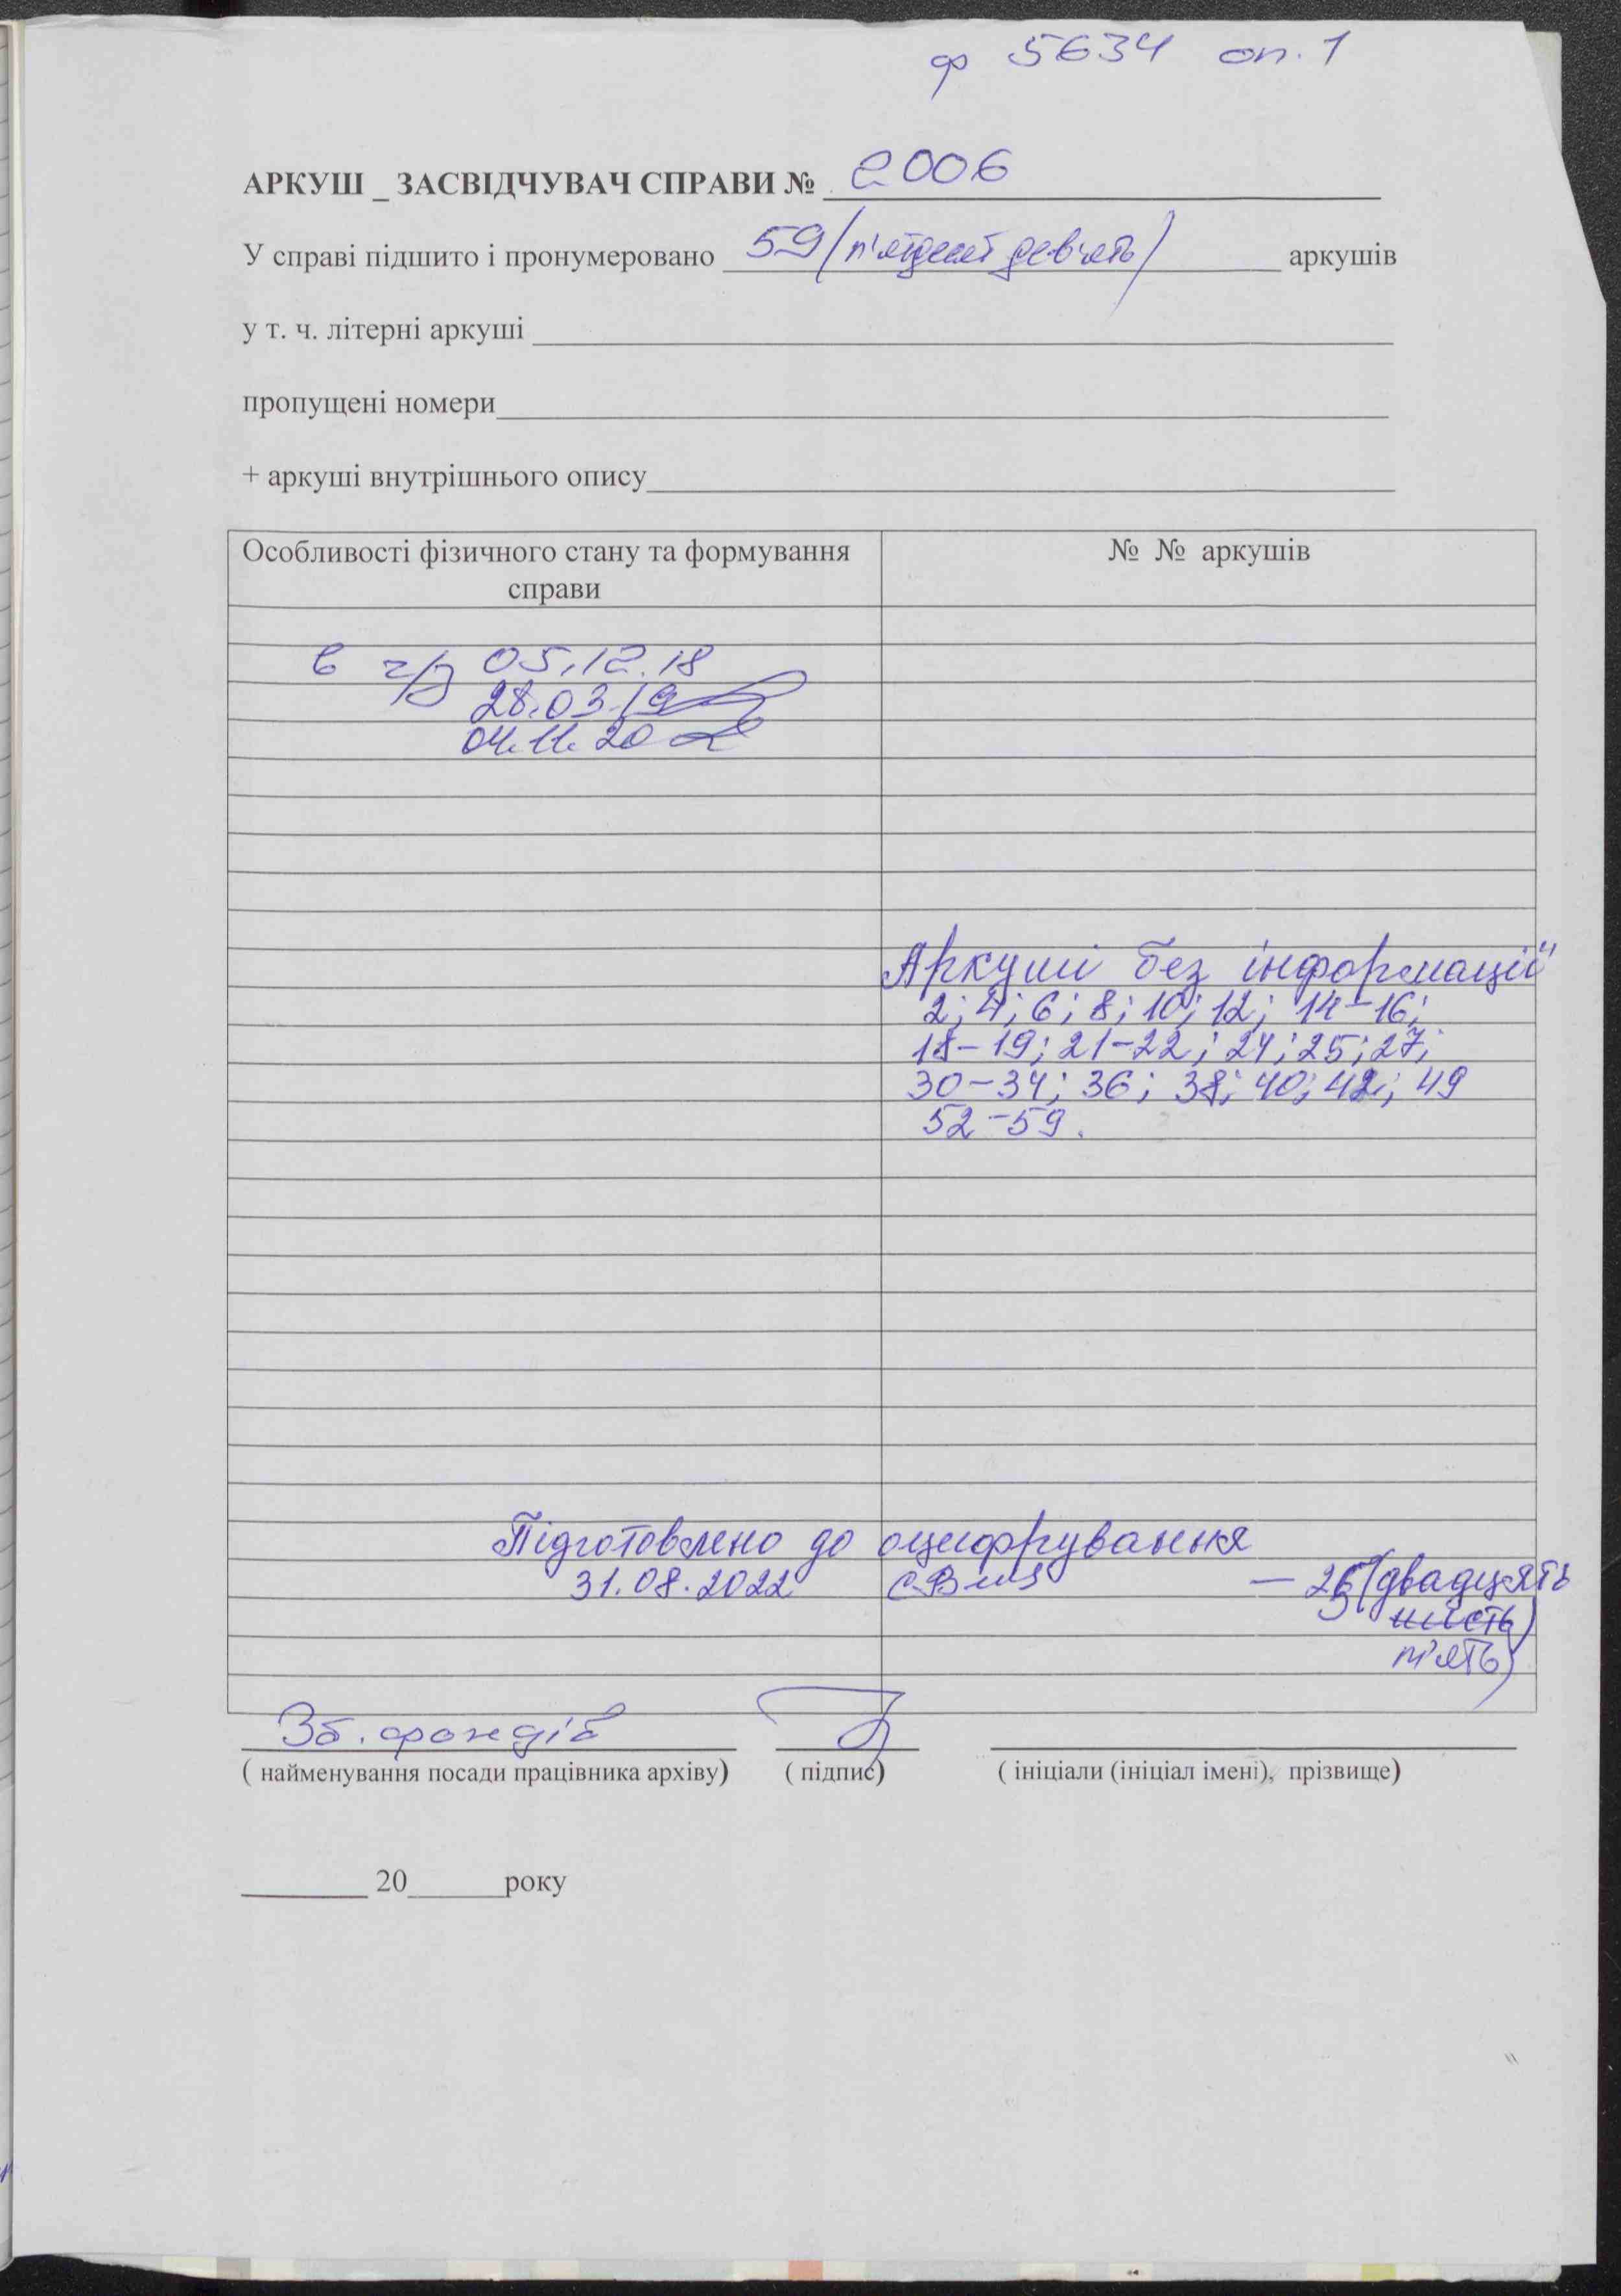 ф 5634 оп. 1
АРКУШ _ ЗАСВІДЧУВАЧ СПРАВИ № 2006
У справі підшито і пронумеровано 59 (п'ятдесят дев'ять) аркушів
у т. ч. літерні аркуші
пропущені номери
+ аркуші внутрішнього опису
Особливості фізичного стану та формування справи
№ № аркушів
в ч/з 05.12.18
28.03.19
04.11.20
Аркуші без інформації
2; 4; 6; 8; 10; 12; 14-16;
18-19; 21-22; 24; 25; 27;
30-34; 36; 38; 40; 42; 49
52-59.
Підготовлено до оцифрування
31.08.2022 - 25 (двадцять
шість)
п'ять)
Зб. фондів
( найменування посади працівника архіву) ( підпис) ( ініціали (ініціал імені), прізвище)
20 року